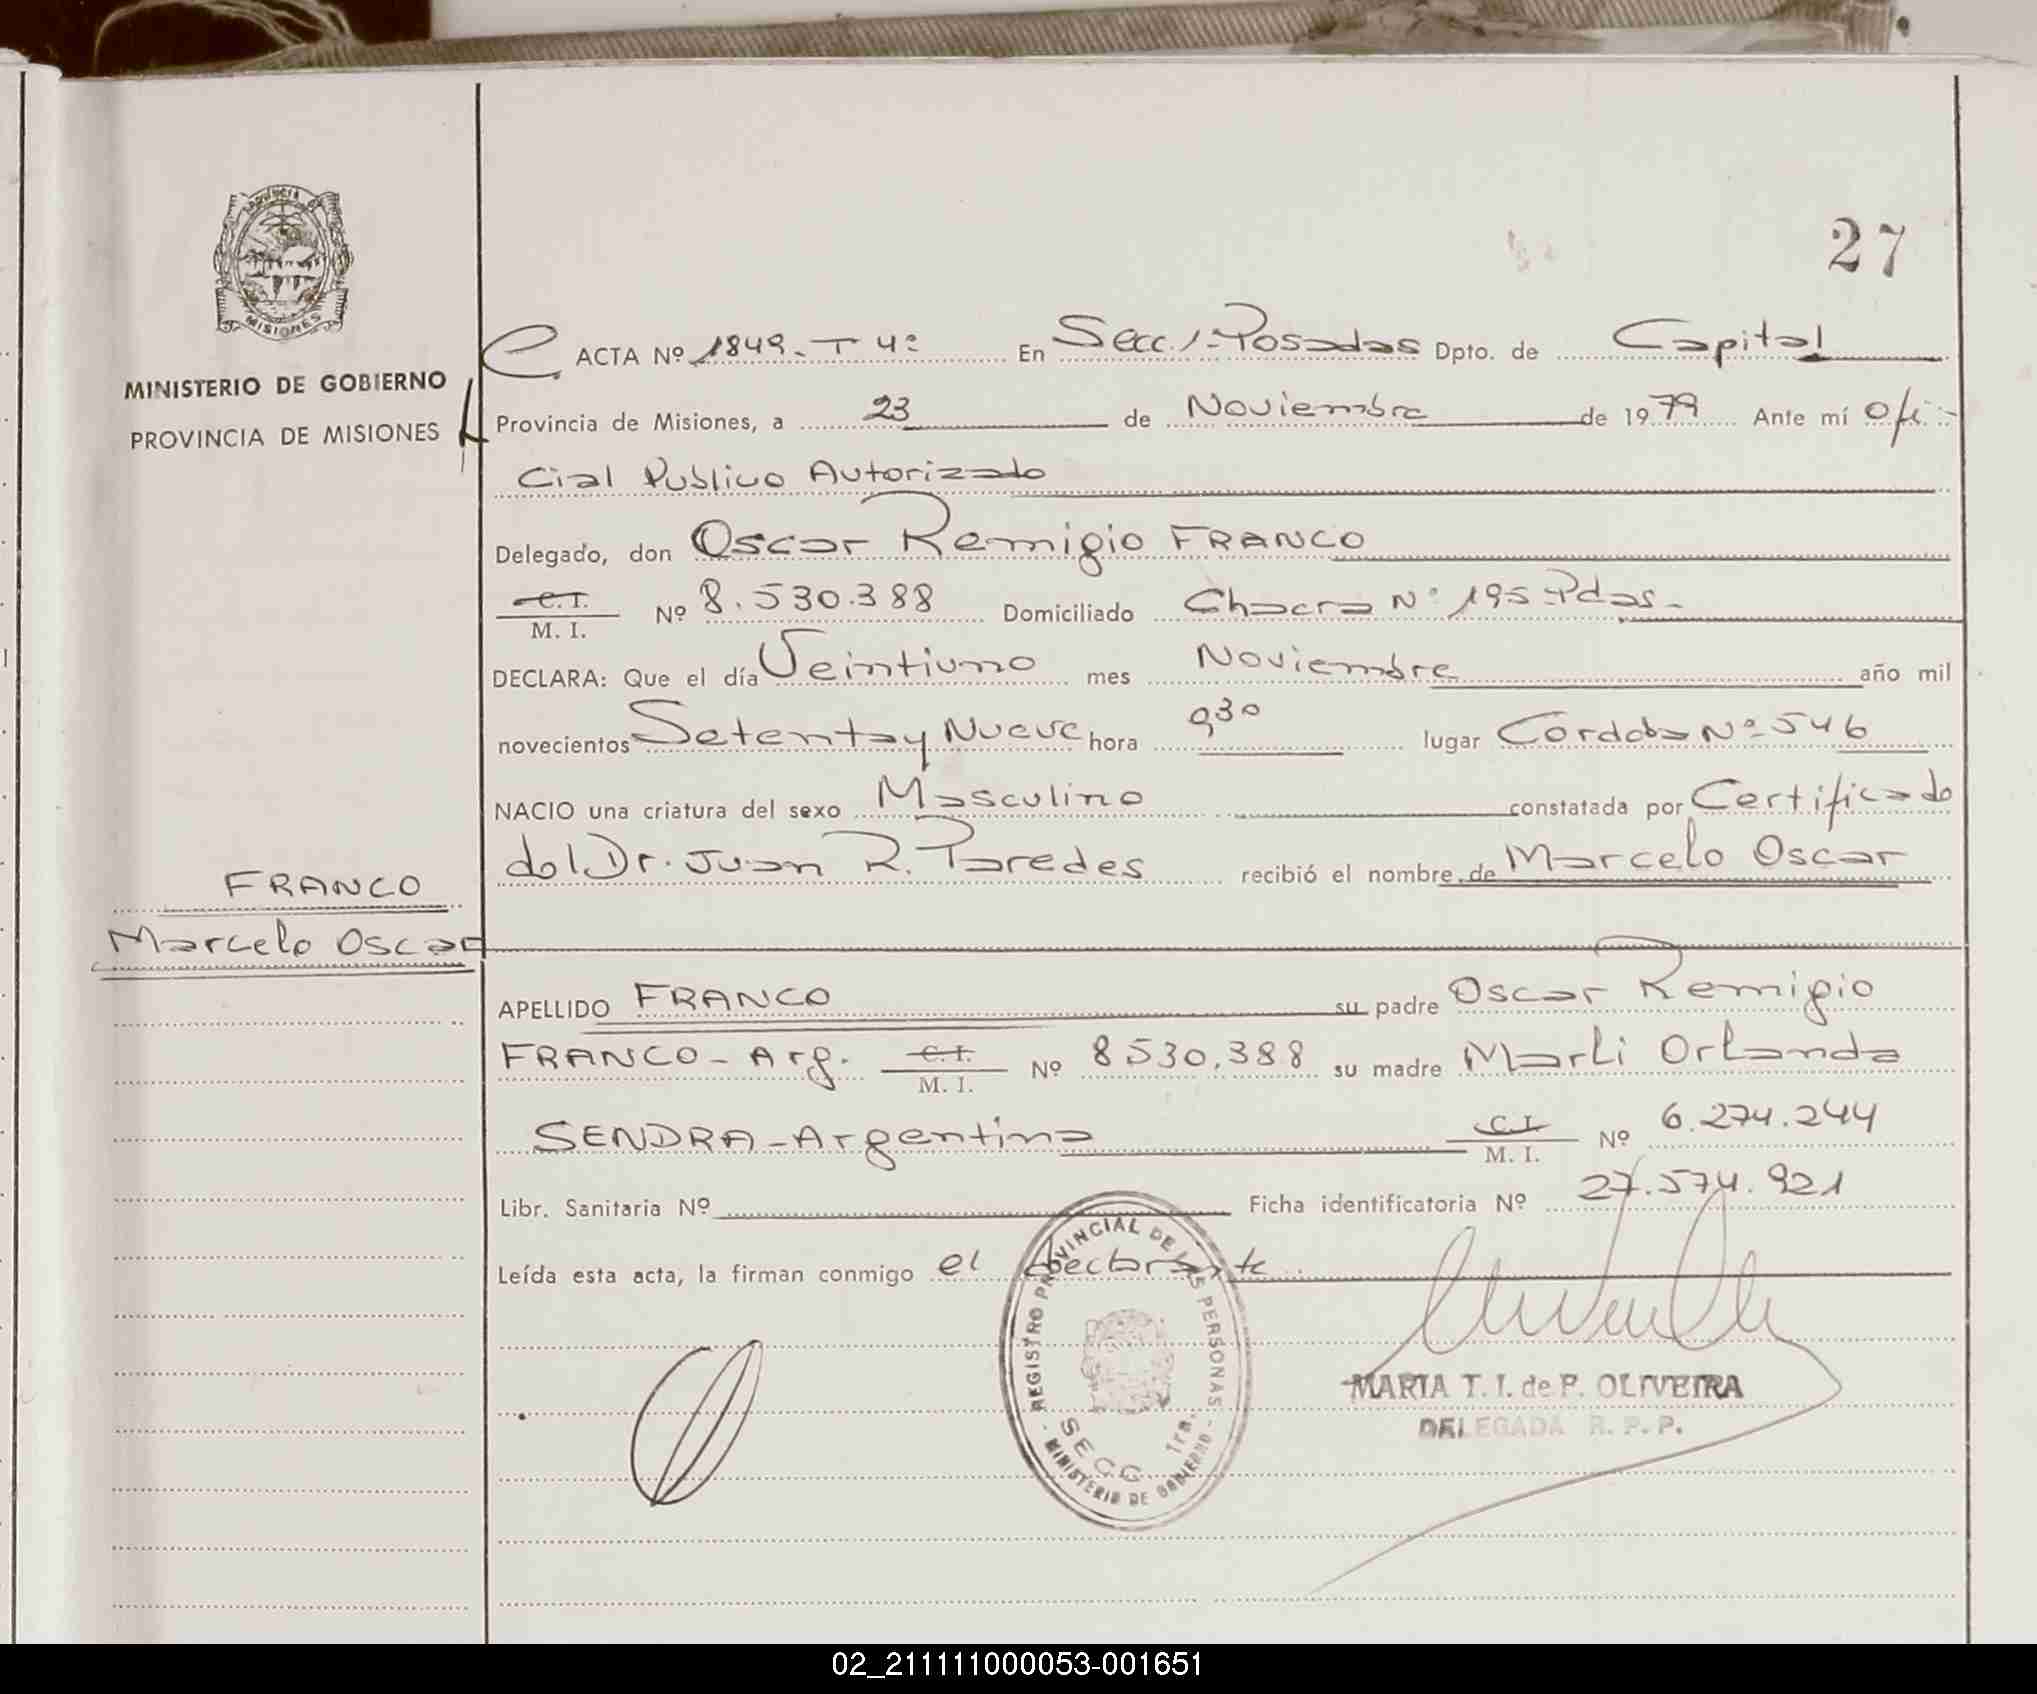 27
MINISTERIO DE GOBIERNO
PROVINCIA DE MISIONES
MISIONES
ACTA Nº 1849.- T 4º En Secc. 1ª Posadas Dpto. de Capital
Provincia de Misiones, a 23 de Noviembre de 1979 Ante mí Ofi-
cial Publico Autorizado
Delegado, don Oscar Remigio FRANCO
C. I.
M. I. Nº 8.530.388 Domiciliado Chacra Nº 195 Pdas.-
DECLARA: Que el día Veintiuno mes Noviembre año mil
novecientos Setenta y Nueve hora 9 30 lugar Cordoba Nº 546
NACIO una criatura del sexo Masculino constatada por Certificado
del Dr. Juan R. Paredes recibió el nombre de Marcelo Oscar
FRANCO
Marcelo Oscar
APELLIDO FRANCO su padre Oscar Remigio
FRANCO - Arg. C. I.
M. I. Nº 8530.388 su madre Marli Orlanda
SENDRA - Argentina C. I.
M. I. Nº 6.274.244
Libr. Sanitaria Nº Ficha identificatoria Nº 27.574.921
Leída esta acta, la firman conmigo el declarante
REGISTRO PROVINCIAL DE LAS PERSONAS
SECC. 1ra.
MINISTERIO DE GOBIERNO
MARIA T. I. de P. OLIVEIRA
DELEGADA R. P. P.
02_211111000053-001651